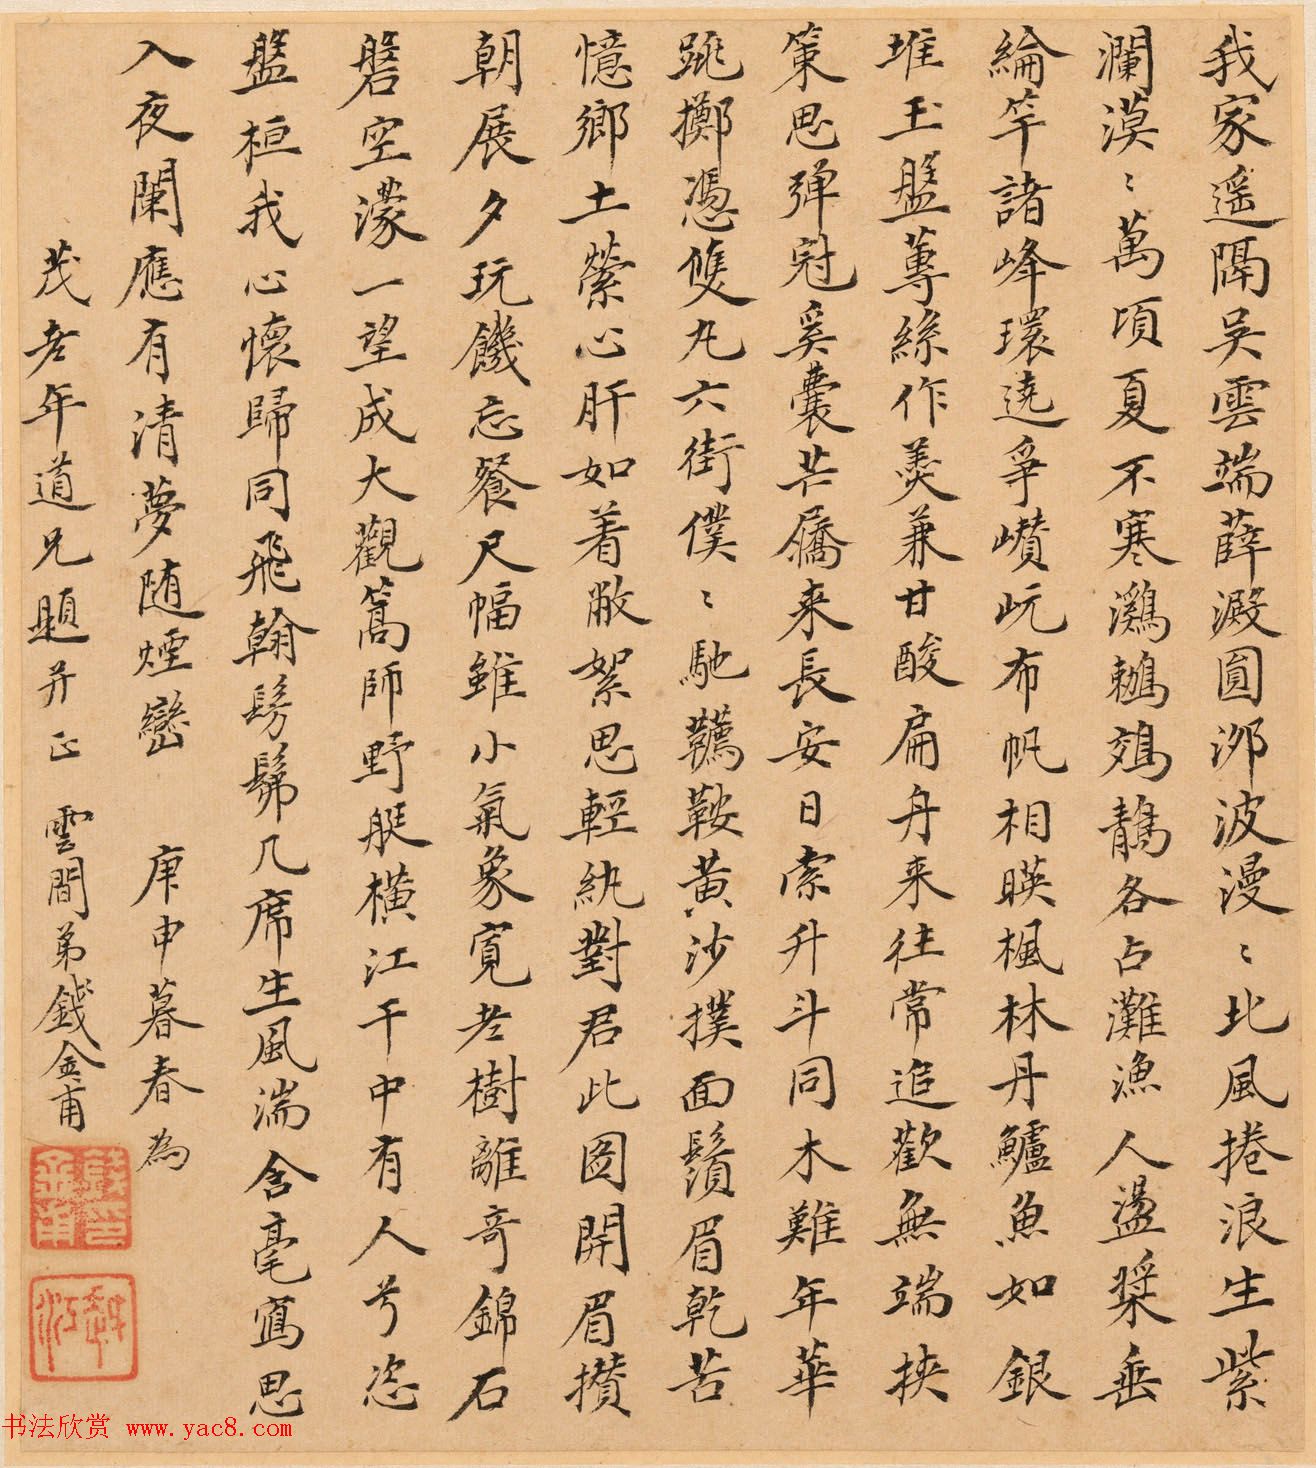 我家遥隔吳雲端薛澱圓泖波漫〻北風捲浪生紫
瀾漠〻萬頃夏不寒鸂鶒鵁鶄各占灘漁人盪槳垂
綸竿諸峰環遶爭巑岏布帆相暎楓林丹鱸魚如銀
堆玉盤蓴絲作羹兼甘酸扁舟来往常追歡無端挾
策思彈冠奚囊芒屩来長安日索升斗同木難年華
跳擲憑雙丸六街僕〻馳韉鞍黃沙撲面鬚眉乾苦
憶鄉土縈心肝如着敝絮思輕紈對君此圖開眉攢
朝展夕玩饑忘餐尺幅雖小氣象寬老樹離奇錦石
磐空濛一望成大觀篙師野艇橫江干中有人兮恣
盤桓我心懷歸同飛翰髣髴几席生風湍含毫寫思
入夜闌應有清夢随煙巒 庚申暮春為
茂老年道兄題并正 雲間弟錢金甫
书法欣赏 www.yac8.com